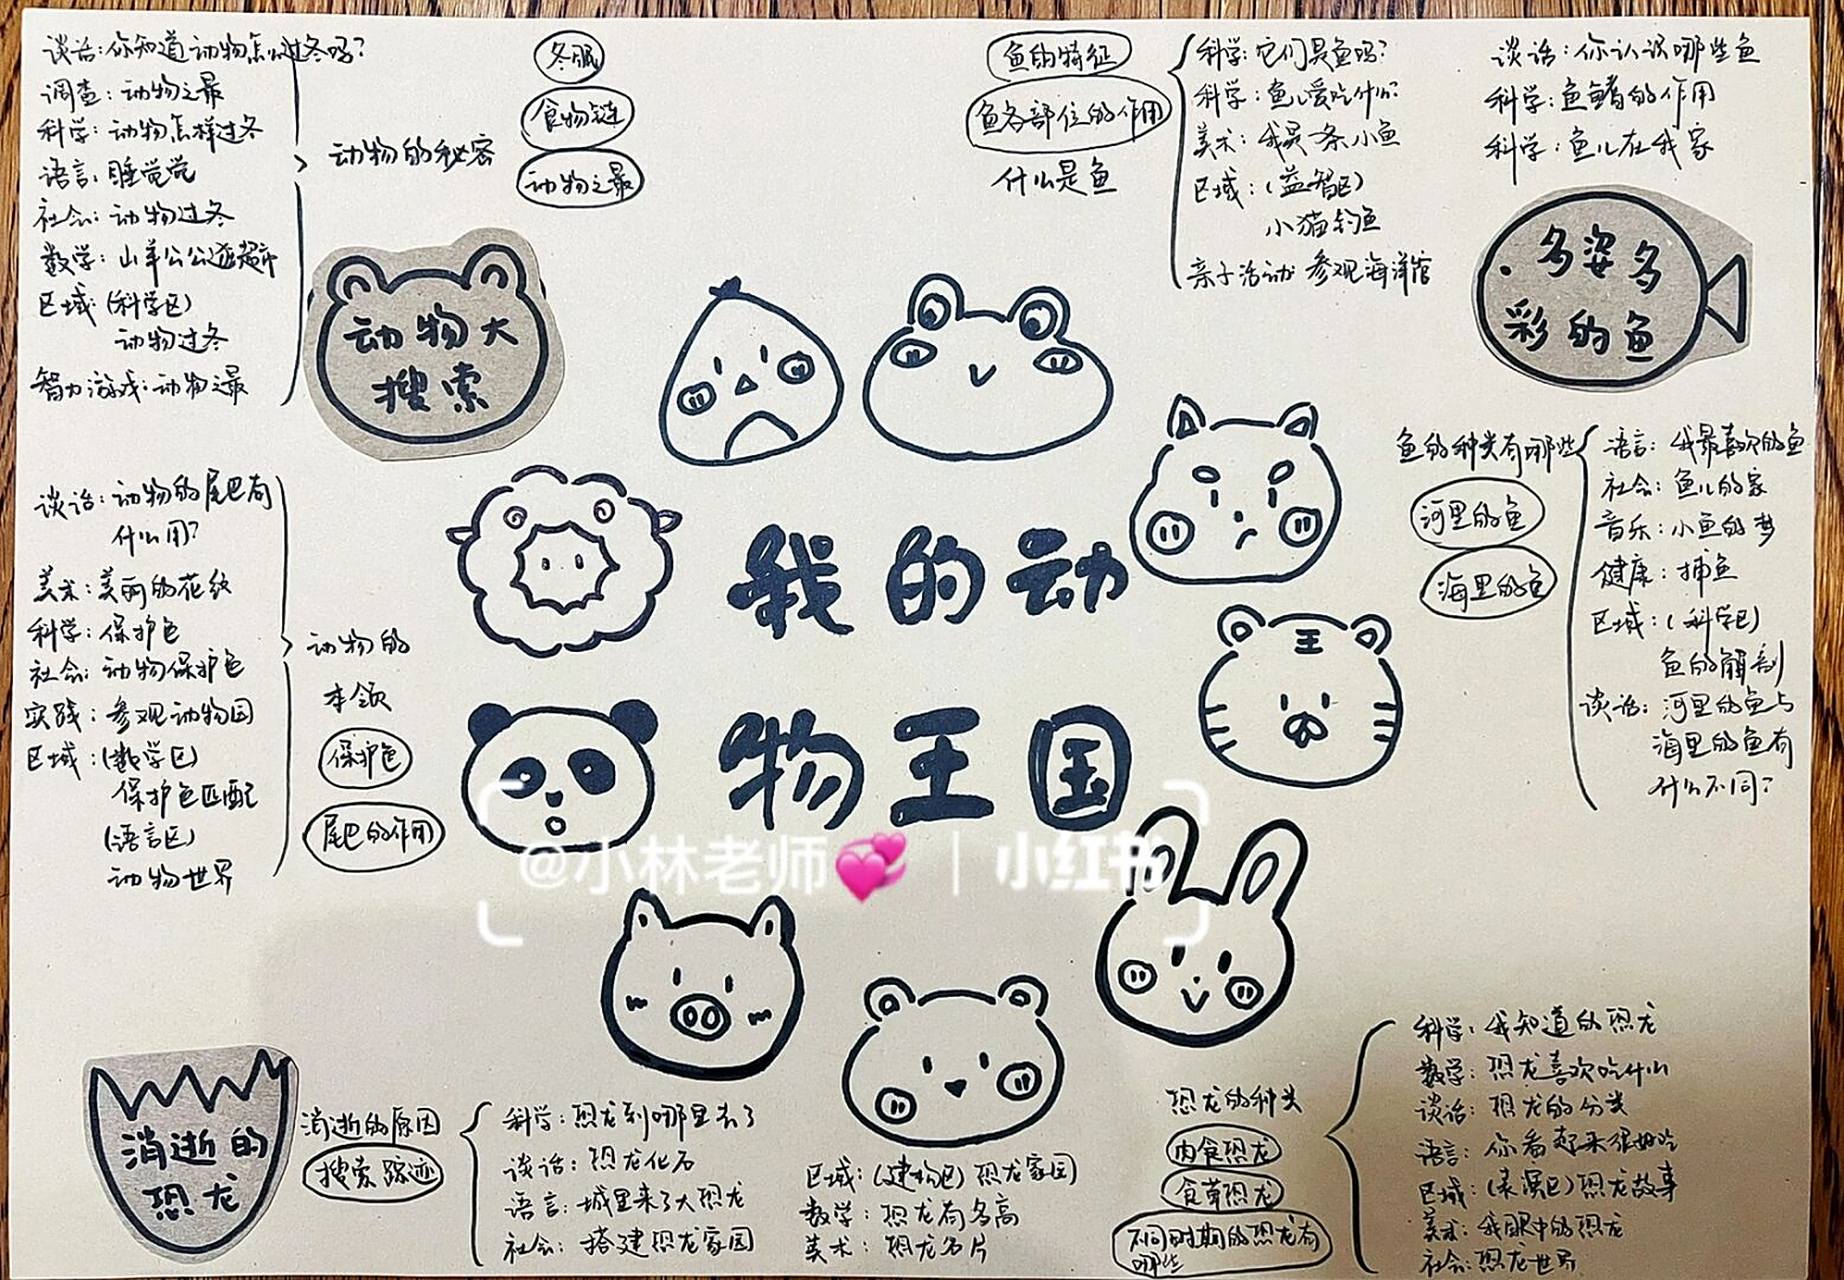 谈话:你知道动物怎么过冬吗?
调查:动物之最
科学:动物怎样过冬
语言:睡觉觉
社会:动物过冬
数学:山羊公公逛超市
区域:(科学区)
动物过冬
智力游戏:动物之最
动物的秘密
冬眠
食物链
动物之最
动物大
搜索
鱼的特征
鱼各部位的作用
什么是鱼
科学:它们是鱼吗?
科学:鱼儿爱吃什么?
美术:我是一条小鱼
区域:(益智区)
小猫钓鱼
亲子活动:参观海洋馆
谈话:你认识哪些鱼
科学:鱼鳍的作用
科学:鱼儿在我家
多姿多
彩的鱼
鱼的种类有哪些
河里的鱼
海里的鱼
语言:我最喜欢的鱼
社会:鱼儿的家
音乐:小鱼的梦
健康:捕鱼
区域:(科学区)
鱼的解剖
谈话:河里的鱼与
海里的鱼有
什么不同?
谈话:动物的尾巴有
什么用?
美术:美丽的花纹
科学:保护色
社会:动物保护色
实践:参观动物园
区域:(数学区)
保护色匹配
(语言区)
动物世界
动物的
本领
保护色
尾巴的作用
我的动
物王国
王
@小林老师💞|小红书
消逝的
恐龙
消逝的原因
搜索踪迹
科学:恐龙到哪里去了
谈话:恐龙化石
语言:城里来了大恐龙
社会:搭建恐龙家园
区域:(建构区)恐龙家园
数学:恐龙有多高
美术:恐龙名片
恐龙的种类
肉食恐龙
食草恐龙
不同时期的恐龙有
哪些
科学:我知道的恐龙
数学:恐龙喜欢吃什么
谈话:恐龙的分类
语言:你看起来很好吃
区域:(表演区)恐龙故事
美术:我眼中的恐龙
社会:恐龙世界